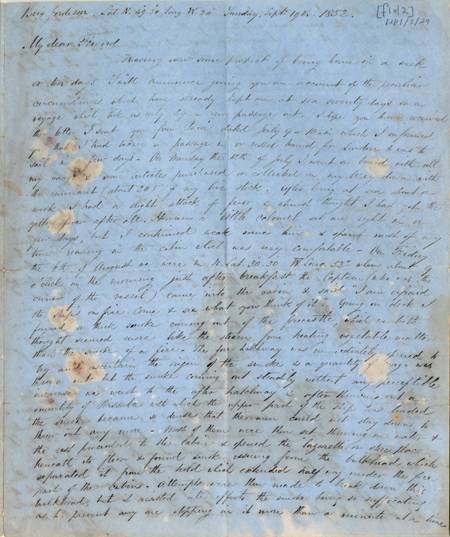 Brig Jordeson Lat N. 49.30 Long W 20 Sunday, Sept 19th 1852
[f1 of 2]
WP1/3/29
My dear Friend
Having now some prospect of being home in a week
or ten days I will commence giving you an account of the peculiar
circumstances which have already kept me at sea seventy days on a
voyage which took us only 29 in our passage out. I hope you have received
the letter I sent you from Para dated July 9 in which I informed
you that I had taken a passage in a vessel bound for London & was to
sail in a few days. On Monday the 12th of July I went on board with all
my
articles purchased or collected on my
down with
the remainder (about 20) of my live stock. After being at sea about a
week I had a slight attack of fever & almost thought I had got the
yellow fever after all. However a little calomel set me right in a
few days, but I continued weak some time & spent most of my
time reading in the cabin which was very comfortable. On Friday
the 6th of August we were in N. Lat 30.30 W Long 52 when about
o'clock in the morning just after breakfast the Captain (who was the
owner of the vessel) came into the cabin & said "I am afraid
the ship's on fire. Come & see what you think of it." Going on deck I
found a thick smoke coming out of the forecastle, which we both
thought seemed more like the steam from heating vegetable matter
than the smoke of a fire. The fore hatchway was immediately opened to
try and ascertain the origin of the smoke & a quantity of cargo was
thrown out but the smoke coming out steadily without any perceptible
increase we went to the after hatchway & after throwing out a
quantity of Piassaba with which the upper part of the ship was loaded
the smoke became so dense that the men could not stay down to
throw out any more. Most of them were then set to throwing in water, &
the rest proceeded to the cabin & opened the lazarette or
beneath its floor & found smoke issuing from the bulkhead which
separated it from the hold which extended half way under the fore
part of the cabin. Attempts were then made to break down this
bulkhead, but it resisted all efforts the smoke being so suffocating
as to prevent any one stopping in it more than a minute at a time